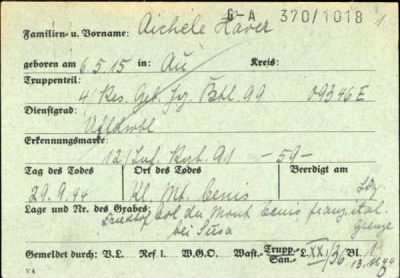 G-A 370/1018 1
Familien- u. Vorname: Aichele Xaver
geboren am 6.5.15 in: Au Kreis:
Truppenteil:
4/Res. Geb. Jg. Btl. 99 09346E
Dienstgrad:
Erkennungsmarke:
12/Inf. Rgt. 91 -59-
Tag des Todes Ort des Todes Beerdigt am
29.9.44 Kl. Mt. Cenis
Lage und Nr. des Grabes:
Friedhof Col du Mont Cenis franz. ital. Grenze
bei Susa
Gemeldet durch: V.L. Ref I. W.G.O. Wast.- Trupp.- San.- L. XX/36 Bl. 1
13.11.44
VA